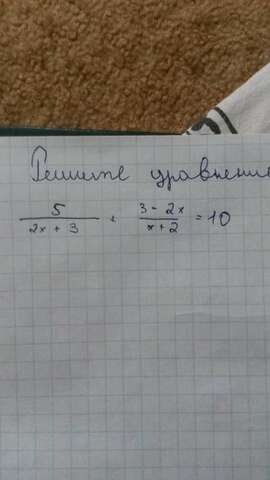 Решите уравнение
5 / (2x + 3) + (3 - 2x) / (x + 2) = 10